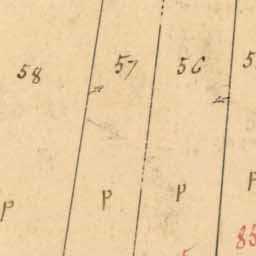 58 57 56 5
P P P P
85
5